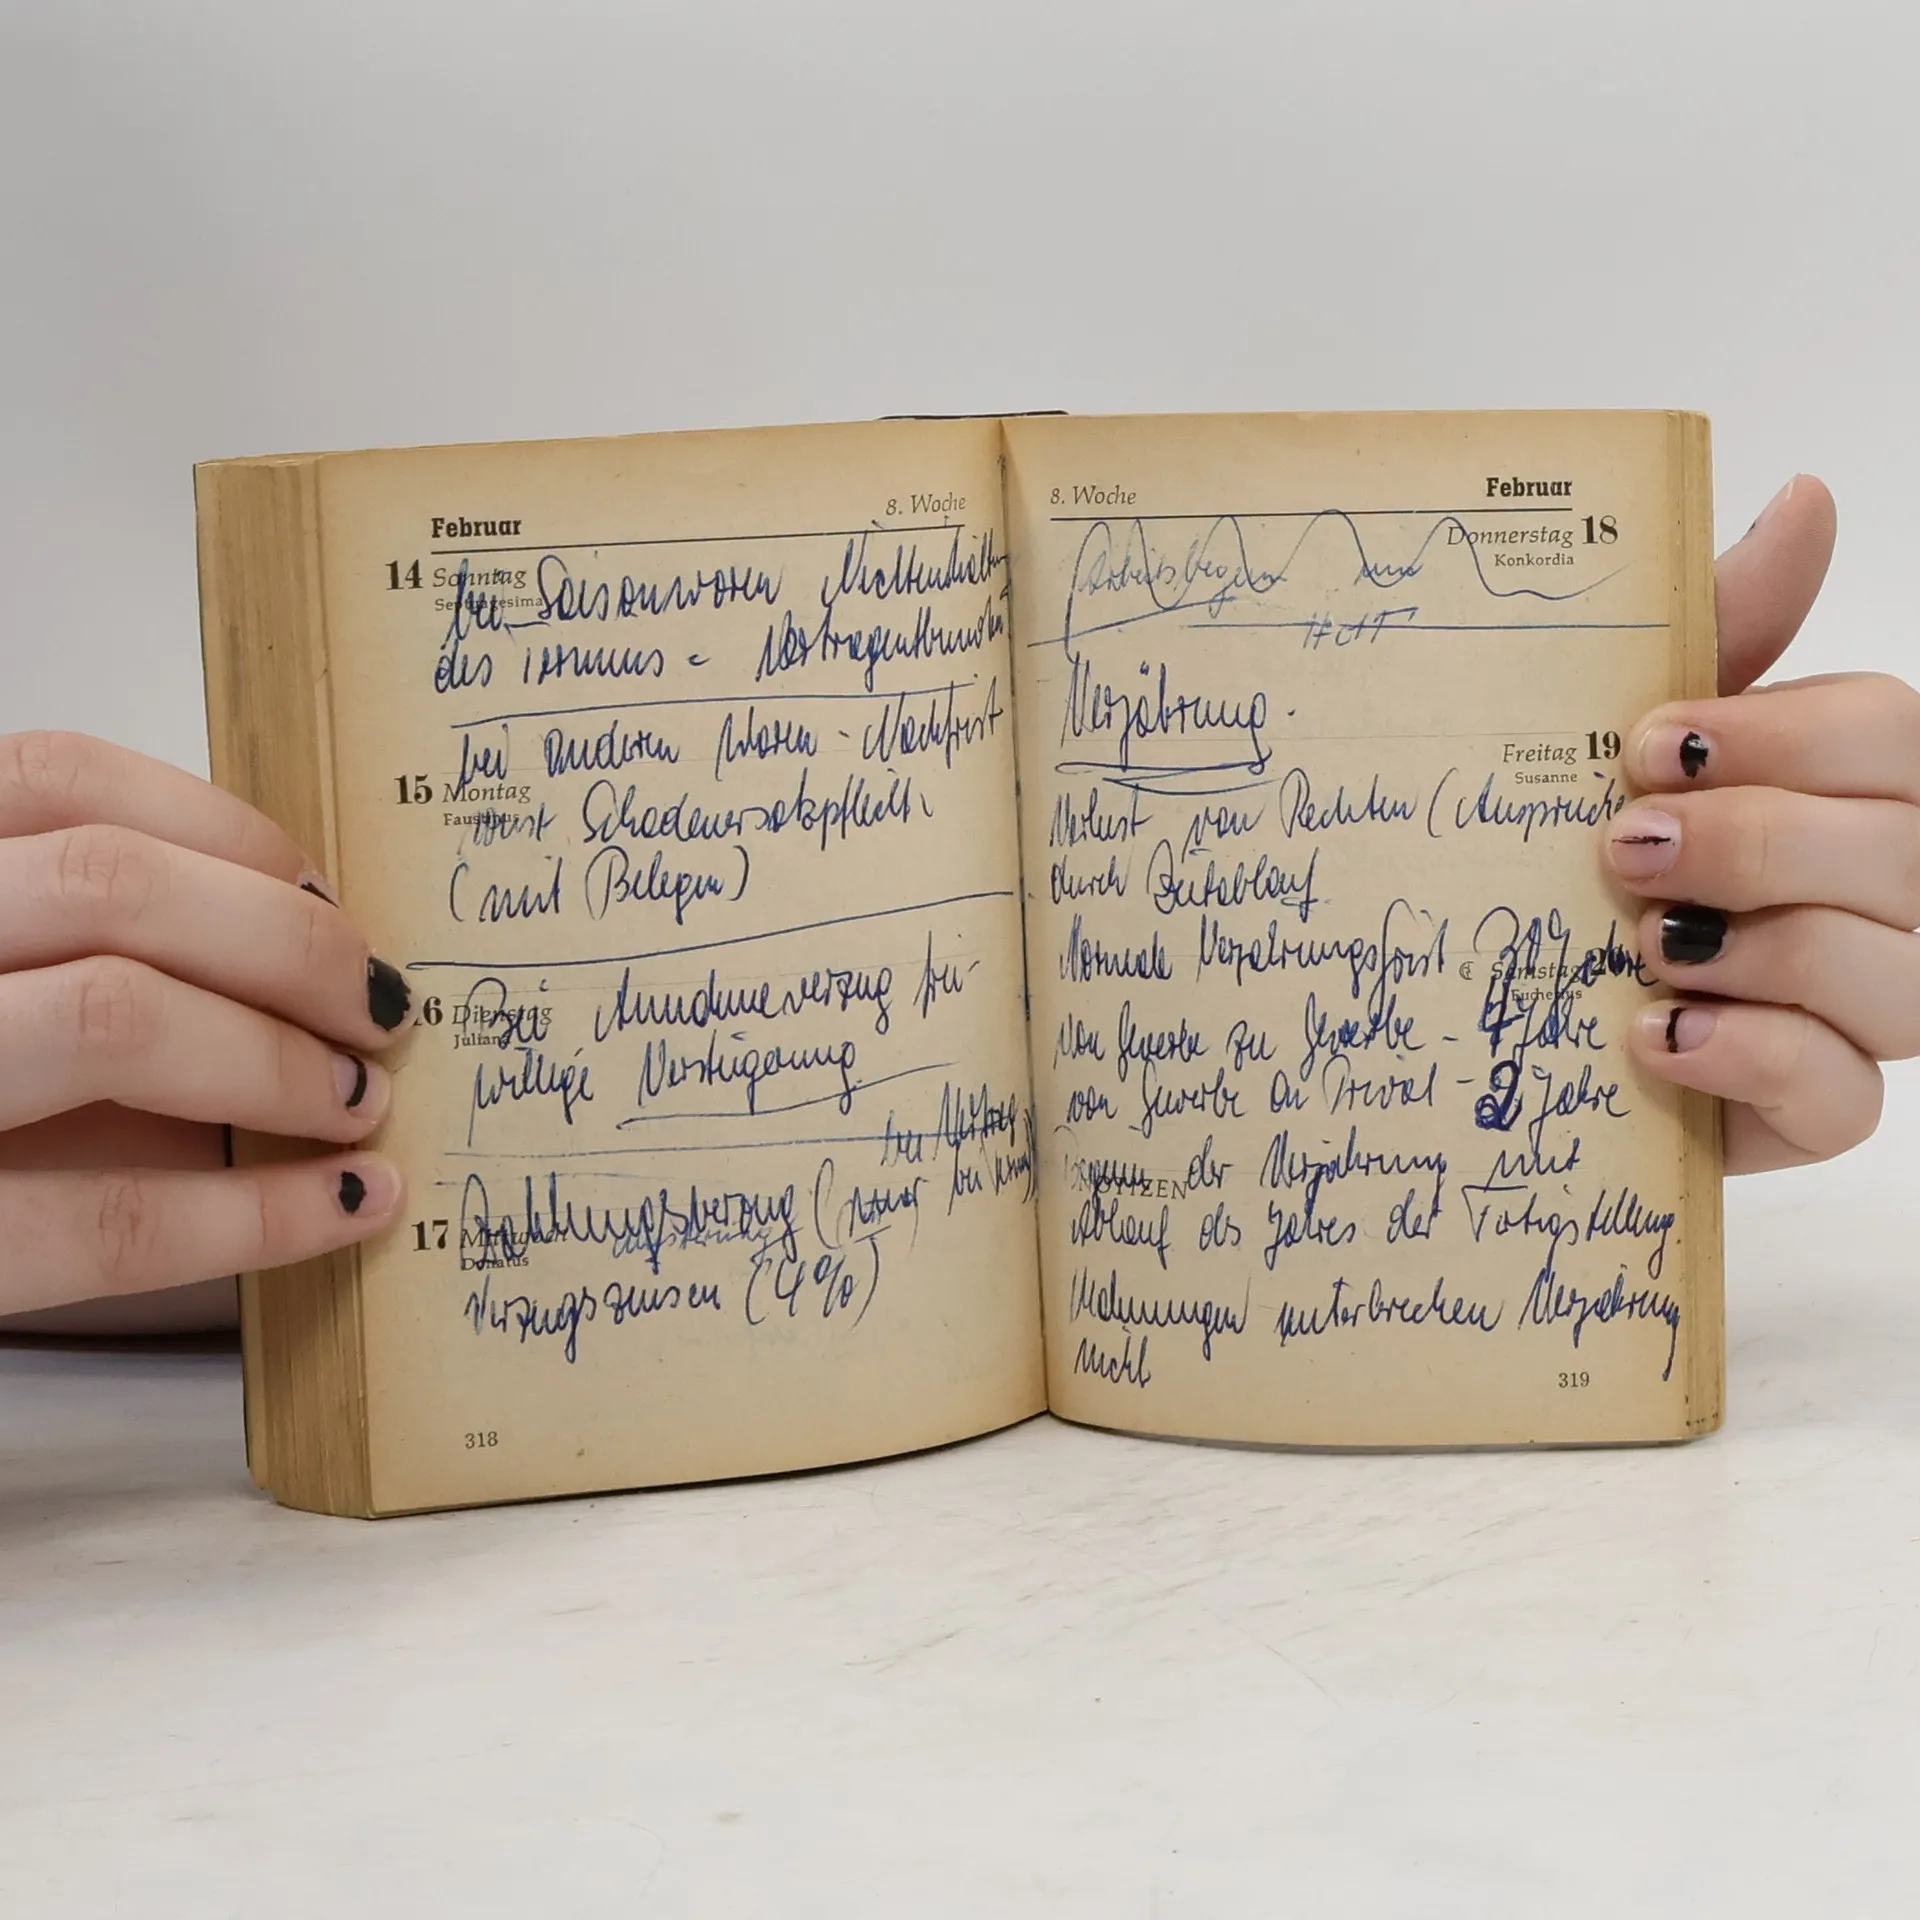 8. Woche
Februar
14 Sonntag
Septuagesima
bei Saisonwaren Nichteinhalten
des Termins = 
bei anderen Waren - Nachfrist
15 Montag
Faustinus
sonst Schadenersatzpflicht
(mit Belegen)
16 Dienstag
Juliana
Bei Annahmeverzug frei-
willige Versteigerung
bei Vertrag
17 Mittwoch
Donatus
Zahlungsverzug (
Verzugszinsen (4%)
318
8. Woche
Februar
Donnerstag 18
Konkordia
Arbeitsbeginn um
Verjährung.
Freitag 19
Susanne
Verlust von Rechten (Ansprüche
durch Zeitablauf
Normale Verjahrungsfrist 30 Jahre
Samstag 20
Eucherius
von Gewerbe zu Gewerbe - 4 Jahre
von Gewerbe an Privat - 2 Jahre
Beginn der Verjahrung mit
NOTIZEN
Ablauf des Jahres der Tätigstellung.
Mahnungen unterbrechen Verjahrung
nicht
319